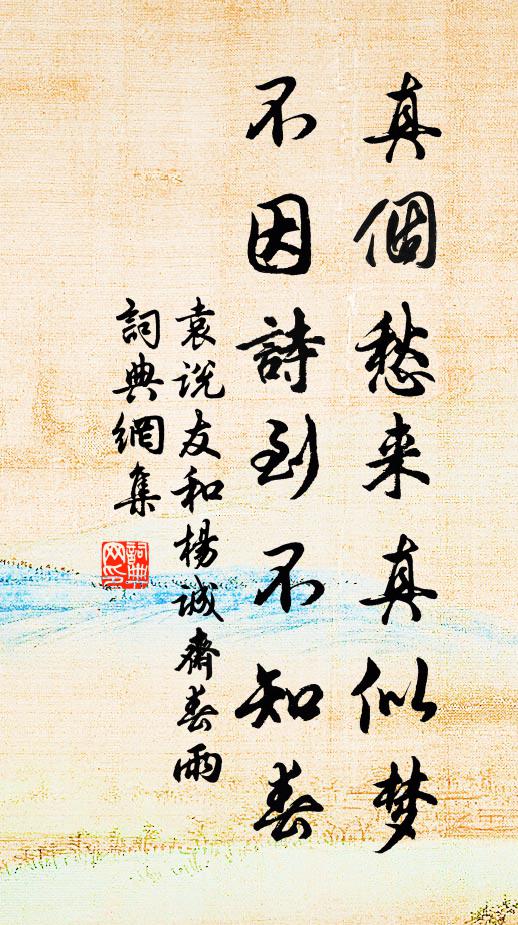 真個愁来真似梦
不因詩到不知春
袁说友和楊诚齋春雨
詞典網集
詞典
网印